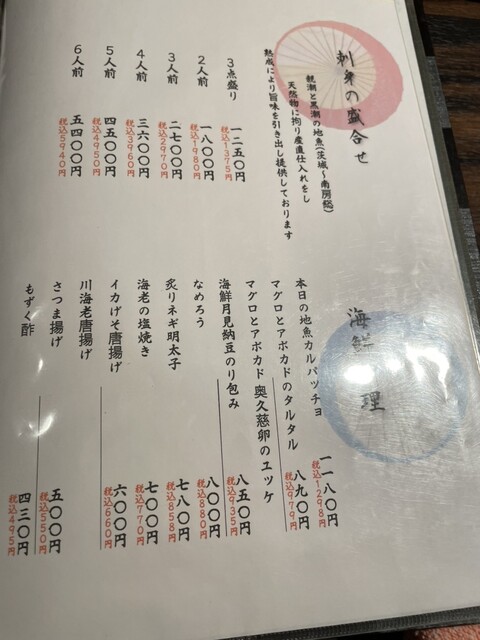 刺身の盛合せ
親潮と黒潮の地魚(茨城〜南房総)
天然物に拘り産直仕入れをし
熟成により旨味を引き出し提供しております
3点盛り 一二五〇円
税込1375円
2人前 一八〇〇円
税込1980円
3人前 二七〇〇円
税込2970円
4人前 三六〇〇円
税込3960円
5人前 四五〇〇円
税込4950円
6人前 五四〇〇円
税込5940円
海鮮 理
本日の地魚カルパッチョ 一一八〇円
税込1298円
マグロとアボカドのタルタル 八九〇円
税込979円
マグロとアボカド 奥久慈卵のユッケ
海鮮月見納豆のり包み 八五〇円
税込935円
なめろう 八〇〇円
税込880円
炙りネギ明太子 七八〇円
税込858円
海老の塩焼き 七〇〇円
税込770円
イカげそ唐揚げ 六〇〇円
税込660円
川海老唐揚げ
さつま揚げ 五〇〇円
税込550円
もずく酢 四三〇円
税込495円